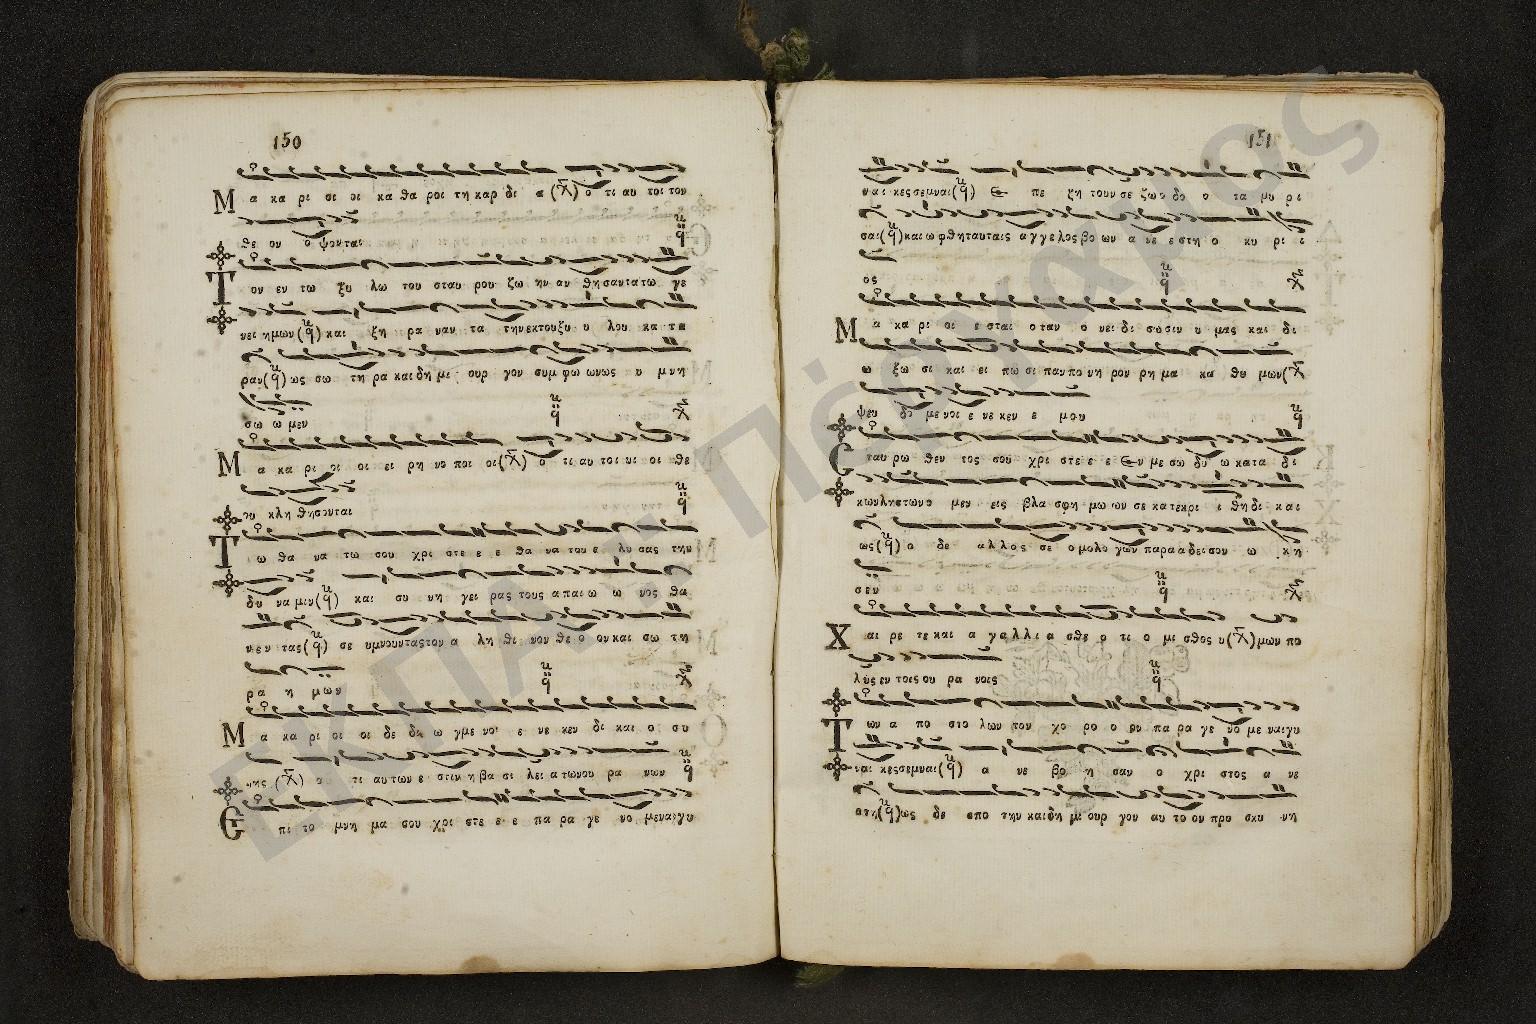 150
Μ α κα ρι οι οι κα θα ροι τη καρ δι α ο τι αυ τοι τον
θε ον ο ψονται
Τ ον εν τω ξυ λω του σταυ ρου ζω ην αν θη σαντατω γε
νει ημων και ξη ρα ναν τα τηνεκτουξυ υ λου κα τα
ραν ως σω τη ρα και δη μι ουρ γον συμ φω ωνως υ μνη
σω ω μεν
Μ α κα ρι οι οι ει ρη νο ποι οι ο τι αυ τοι υι οι θε
ου κλη θησονται
Τ ω θα να τω σου χρι στε ε ε θα να τον ε λυ σας την
δυ να μιν και συ νη γει ρας τους α παι ω ω νος θα
νεν τας σε υμνουνταςτον α λη θι νον θε ο ον και σω τη
ρα η μων
Μ α κα ρι οι οι δε δι ω γμε νοι ε νε κεν δι και ο συ
νης ο τι αυ των ε στιν η βα σι λει α των ου ρα νων
Ε πι το μνη μα σου χρι στε ε ε πα ρα γε νο μεναιγυ
151
ναι κεςσεμναι Ε πε ζη τουν σε ζωο δο ο τα μυ ρι
σαι και ω φθηταυταις αγγελος βο ων α νε ε στη ο κυ ρι ι
ος
Μ α κα ρι οι ε σται ο ταν ο νει δι σωσιν υ μας και δι
ω ξω σι και ει πω σι παν πο νη ρον ρη μα κα θυ μων
ψευ δο με νοι ε νε κεν ε μου
Σ ταυ ρω θεν τος σου χρι στε ε ε Εν με σω δυ ω κατα δι
κωνληστωνο μεν εις βλα σφη μω ων σε κατεκρι ι θη δι και
ως ο δε αλλος σε ο μολο γων παρααδεισον ω κη
σεν
Χ αι ρε τε και α γαλλι α σθε ο τι ο μι σθος υ μων πο
λυς εν τοις ου ρα νοις
Τ ων α πο στο λων τον χο ρο ο ον πα ρα γε νο με ναιγυ
ναι κεςσεμναι α νε βο η σαν ο χρι στος α νε
στη ως δε σπο την και δη μι ουρ γον αυ το ον προ σκυ νη